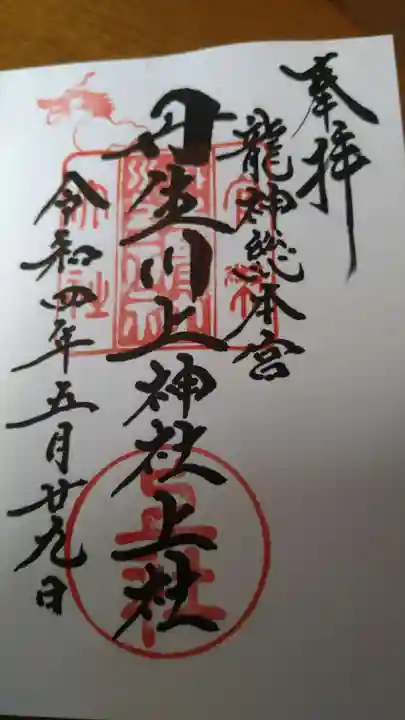 奉拝
龍神総本宮
丹生川上神社上社
令和四年五月廿九日
上社